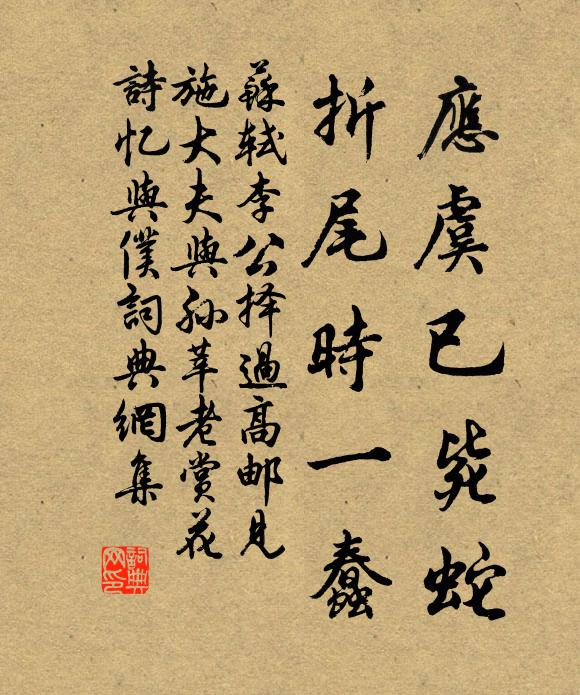 應虞已毙蛇
折尾時一蠢
蘇轼李公择過高邮見
施大夫與孫莘老賞花
詩忆與僕詞典網集
詞典
网印